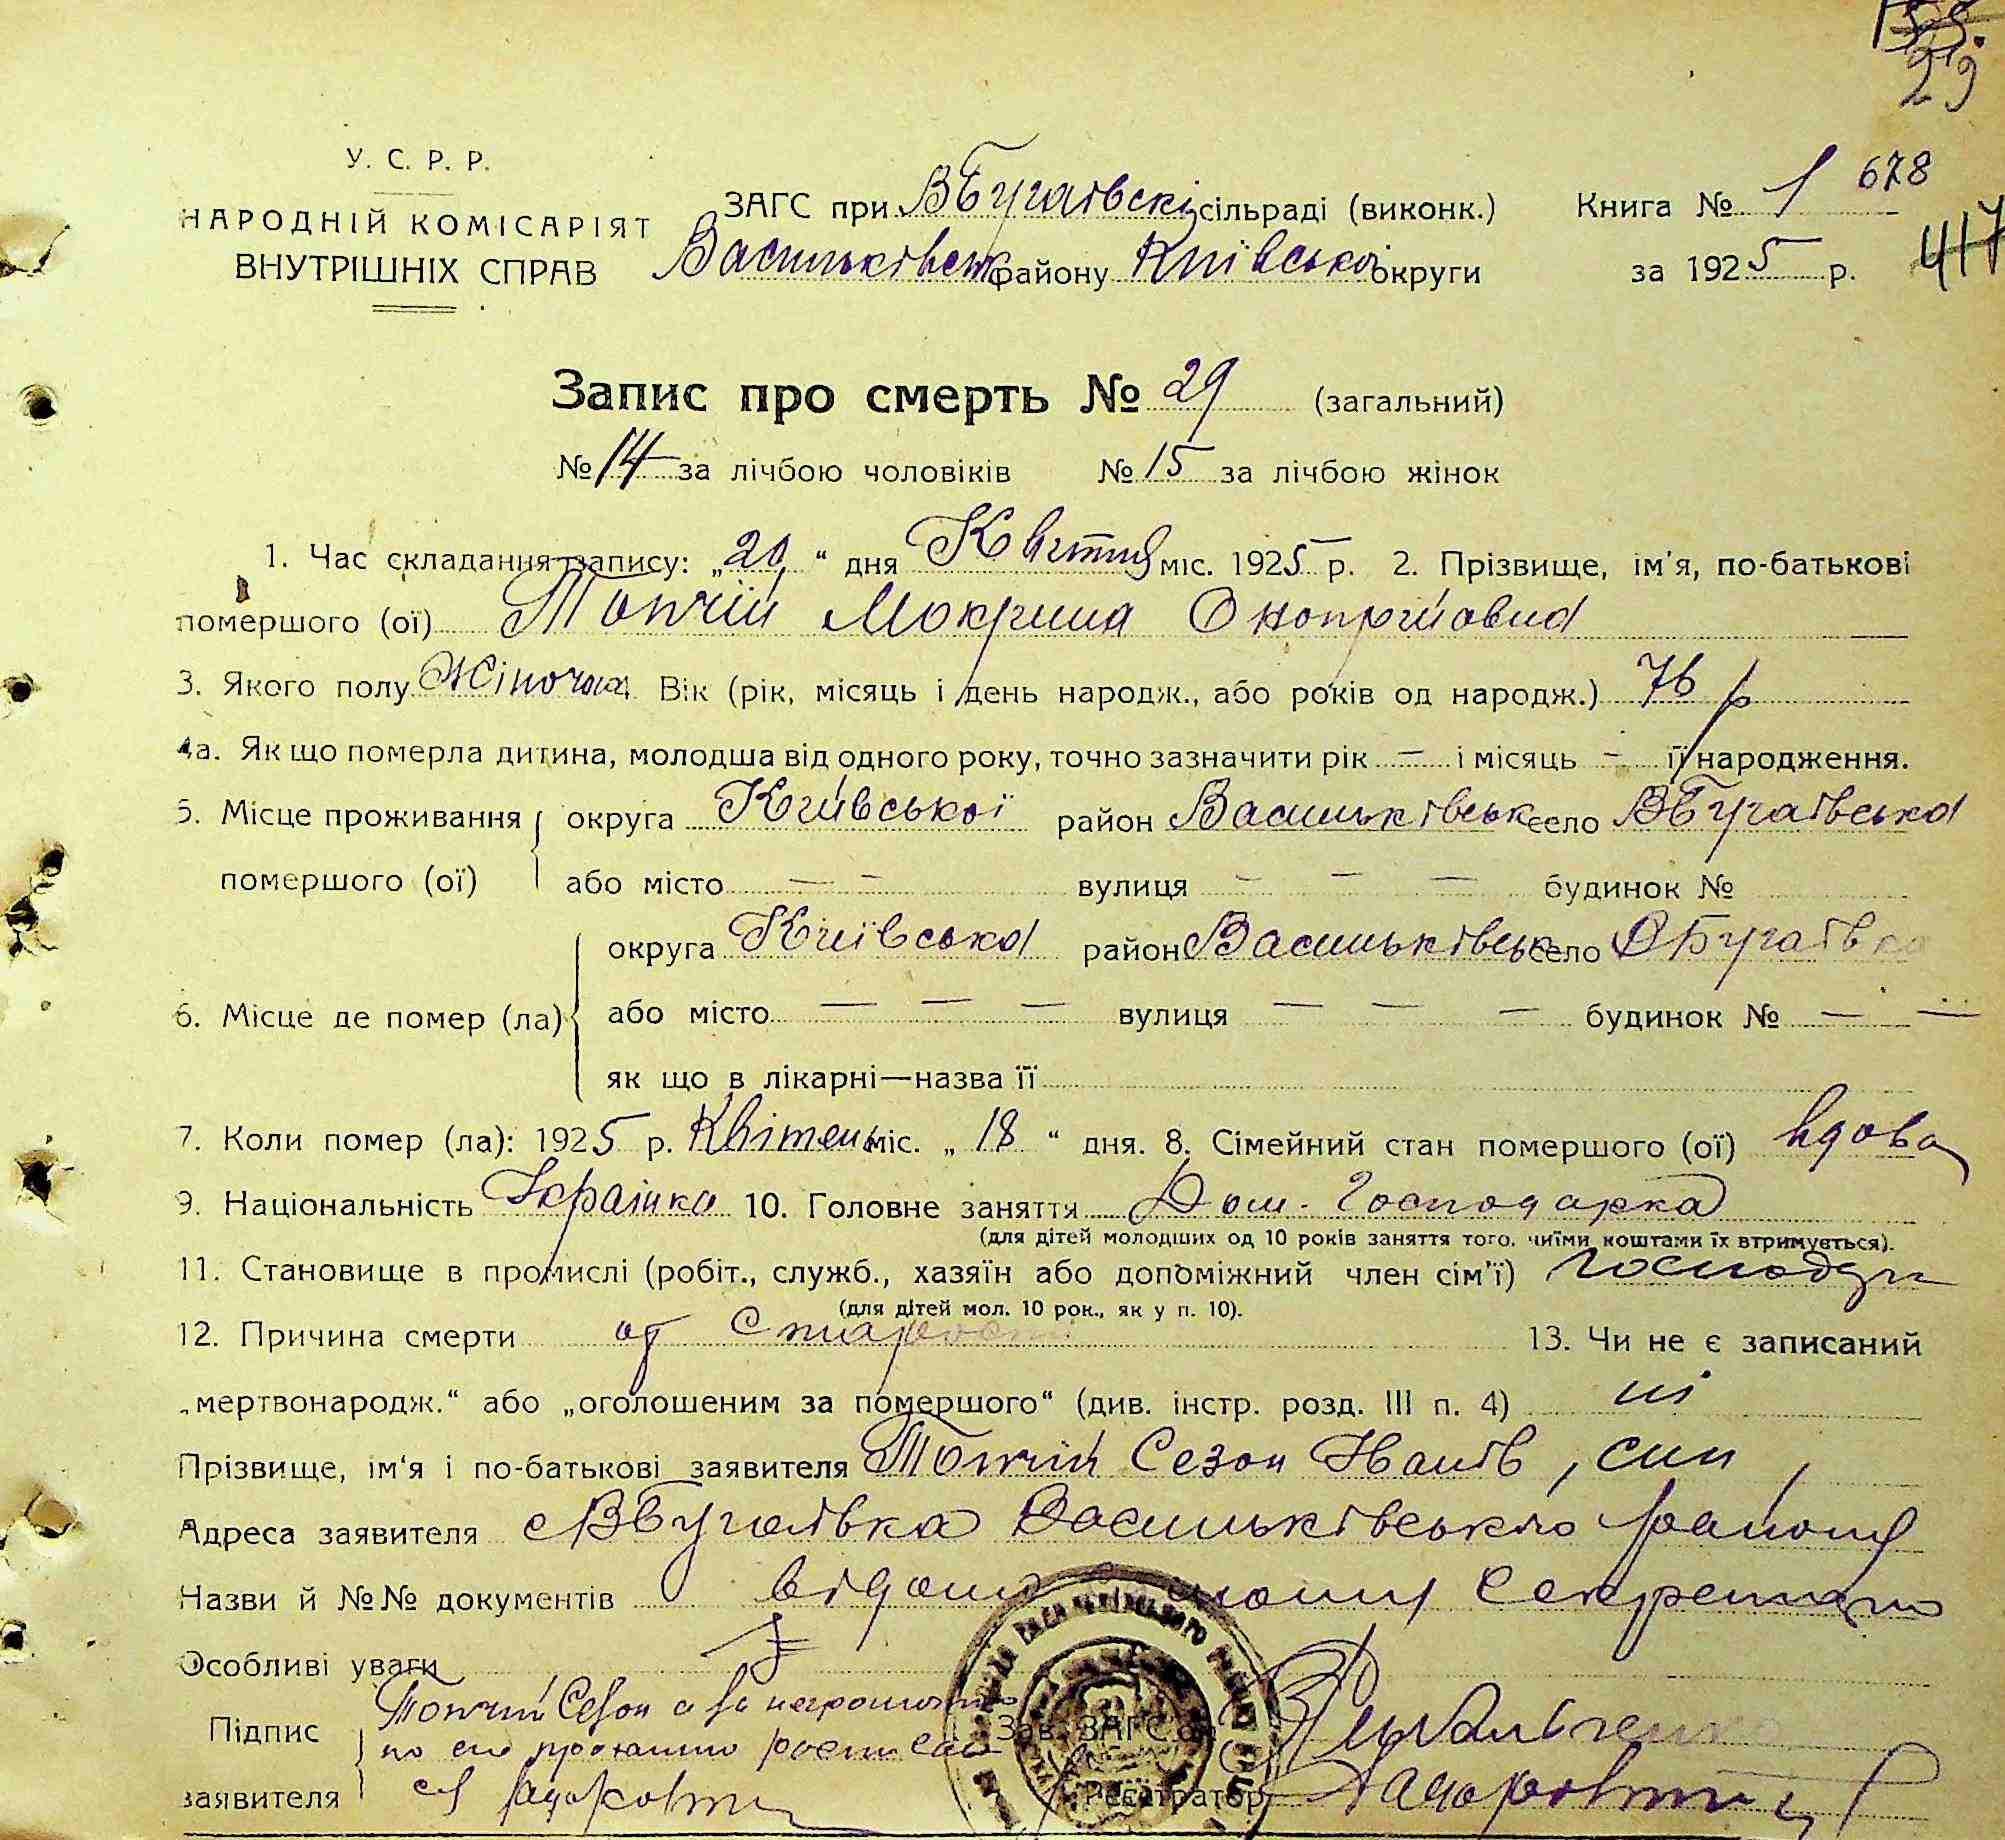 29
У. С. Р. Р.
НАРОДНІЙ КОМІСАРІЯТ
ВНУТРІШНІХ СПРАВ
ЗАГС при ВБугаївскі сільраді (виконк.) Книга № 1 678
Васильківськ району Київської округи за 1925 р. 417
Запис про смерть № 29 (загальний)
№ 14 за лічбою чоловіків № 15 за лічбою жінок
1. Час складання запису: „20 “ дня Квітня міс. 1925 р. 2. Прізвище, ім'я, по-батькові
помершого (ої) Топчій Мокрина Онопріївна
3. Якого полу Жіноча Вік (рік, місяць і день народж., або років од народж.) 76 р
4а. Як що померла дитина, молодша від одного року, точно зазначити рік — і місяць — її народження.
5. Місце проживання округа Київської район Васильківськ село ВБугаївська
помершого (ої) або місто — — вулиця — — — будинок №
округа Київська район Васильківськ село ВБугаївка
6. Місце де помер (ла) або місто — — — вулиця — — — будинок № — —
як що в лікарні—назва її
7. Коли помер (ла): 1925 р. Квітень міс. „ 18 “ дня. 8. Сімейний стан помершого (ої) вдова
9. Національність Українка 10. Головне заняття Дом. Господарка
(для дітей молодших од 10 років заняття того, чиїми коштами їх втримується).
11. Становище в промислі (робіт., служб., хазяїн або допоміжний член сім'ї)
(для дітей мол. 10 рок., як у п. 10).
12. Причина смерти от старости 13. Чи не є записаний
„мертвонародж.“ або „оголошеним за помершого“ (див. інстр. розд. III п. 4) ні
Прізвище, ім'я і по-батькові заявителя Топчій Сезон Іванів, син,
Адреса заявителя с ВБугаївка Васильківського району
Назви й №№ документів відомо Секретарю
Особливі уваги
Підпис Топчий Сезон а за неграмотн
по его прозьбі
заявителя
Зав. ЗАГС'ом
Реєстратор